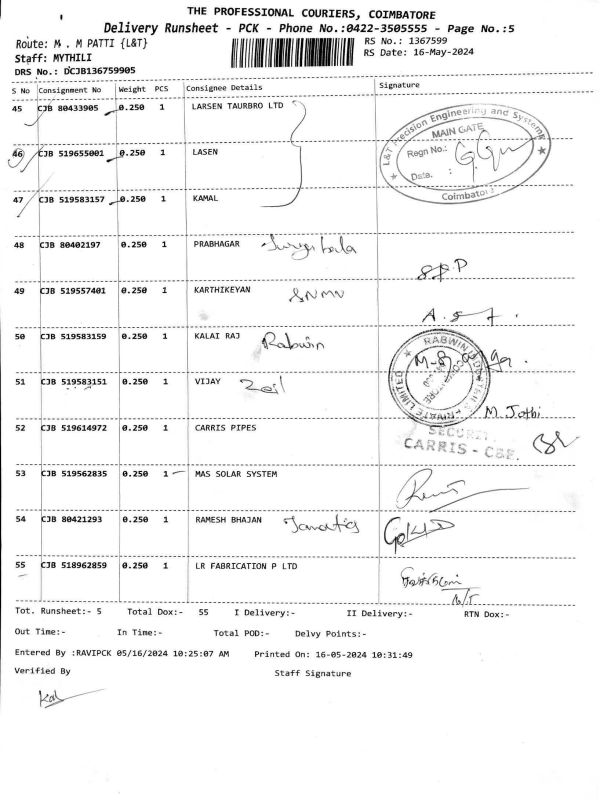 THE PROFESSIONAL COURIERS, COIMBATORE
Delivery Runsheet - PCK - Phone No.:0422-3505555 - Page No.:5
Route: M . M PATTI {L&T}
RS No.: 1367599
Staff: MYTHILI
RS Date: 16-May-2024
DRS No.: DCJB136759905
S No Consignment No Weight PCS Consignee Details Signature
45 CJB 80433905 0.250 1 LARSEN TAURBRO LTD
L&T Precision Engineering and Systems
MAIN GATE
Regn No.:
Date. :
Coimbatore
46 CJB 519655001 0.250 1 LASEN
47 CJB 519583157 0.250 1 KAMAL
48 CJB 80402197 0.250 1 PRABHAGAR
49 CJB 519557401 0.250 1 KARTHIKEYAN SNMV
50 CJB 519583159 0.250 1 KALAI RAJ Rabwin
51 CJB 519583151 0.250 1 VIJAY Zeil M. Jothi
52 CJB 519614972 0.250 1 CARRIS PIPES
SECURITY
CARRIS - CBE.
53 CJB 519562835 0.250 1 MAS SOLAR SYSTEM
54 CJB 80421293 0.250 1 RAMESH BHAJAN
55 CJB 518962859 0.250 1 LR FABRICATION P LTD
Tot. Runsheet:- 5 Total Dox:- 55 I Delivery:- II Delivery:- RTN Dox:-
Out Time:- In Time:- Total POD:- Delvy Points:-
Entered By :RAVIPCK 05/16/2024 10:25:07 AM Printed On: 16-05-2024 10:31:49
Verified By Staff Signature